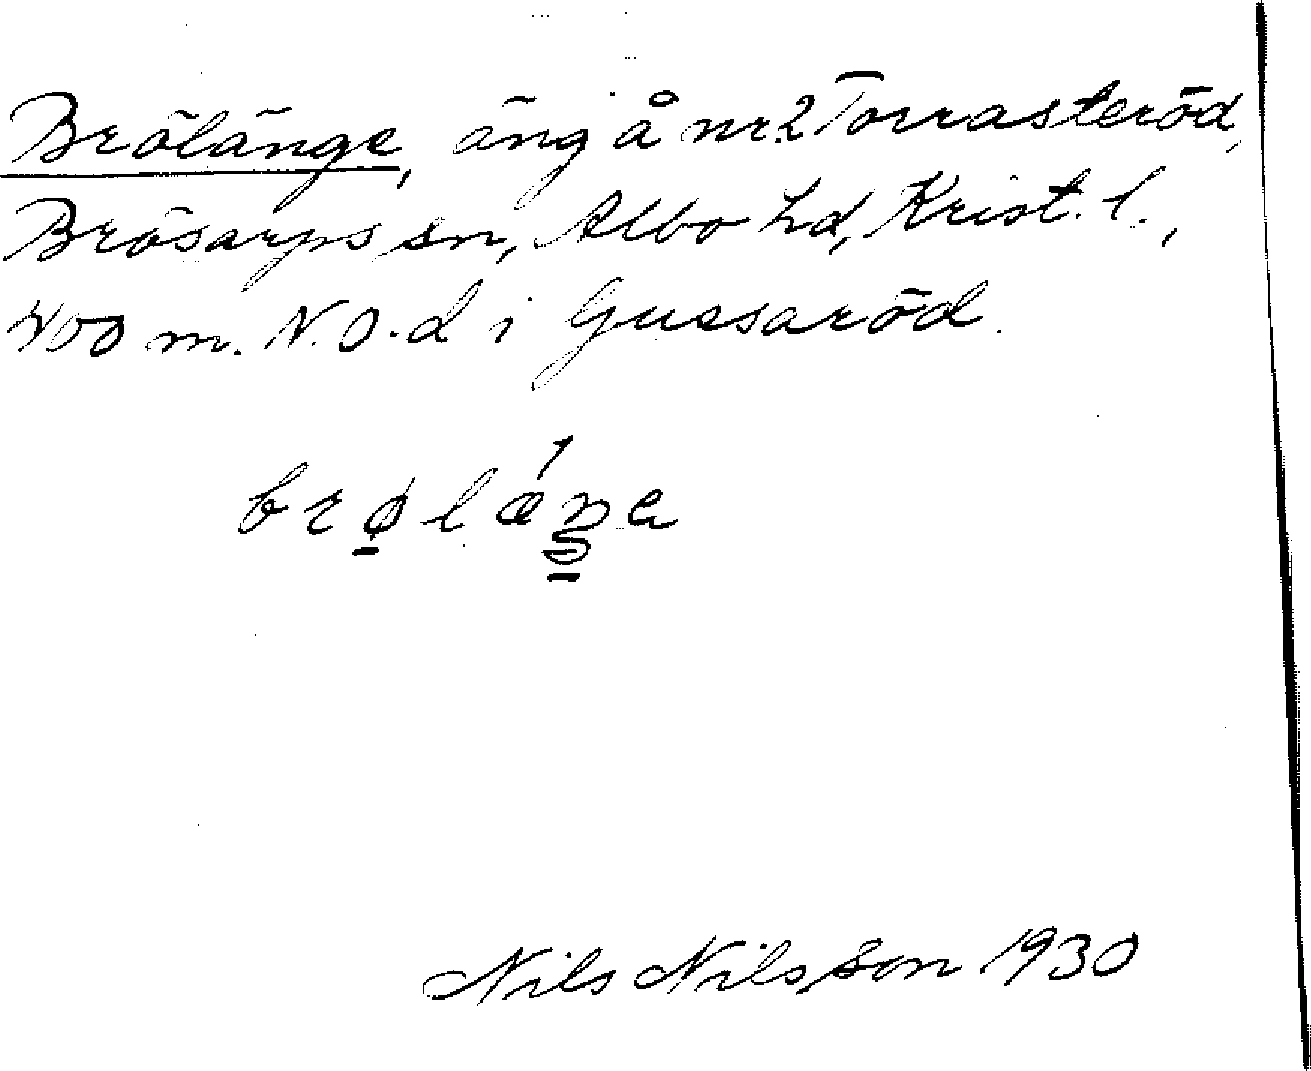 Brölänge, äng å nr. 2 Torrasteröd,
Brösarps sn, Albo hd, Krist. l.,
400 m. N.O. d i Gussaröd.
Nils Nilsson 1930